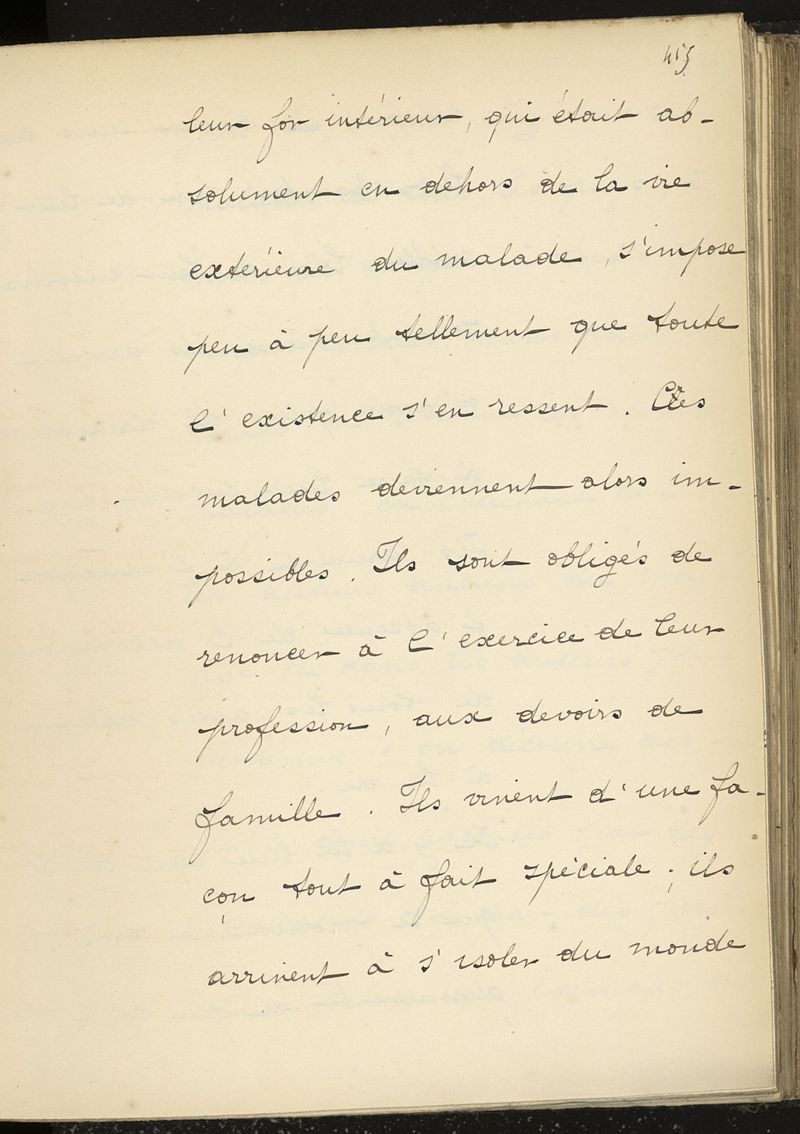 455
leur for intérieur, qui était ab-
solument en dehors de la vie
extérieure du malade, s'impose
peu à peu tellement que toute
l'existence s'en ressent. Ces
malades deviennent alors im-
possibles. Ils sont obligés de
renoncer à l'exercice de leur
profession, aux devoirs de
famille. Ils vivent d'une fa-
çon tout à fait spéciale; ils
arrivent à s'isoler du monde